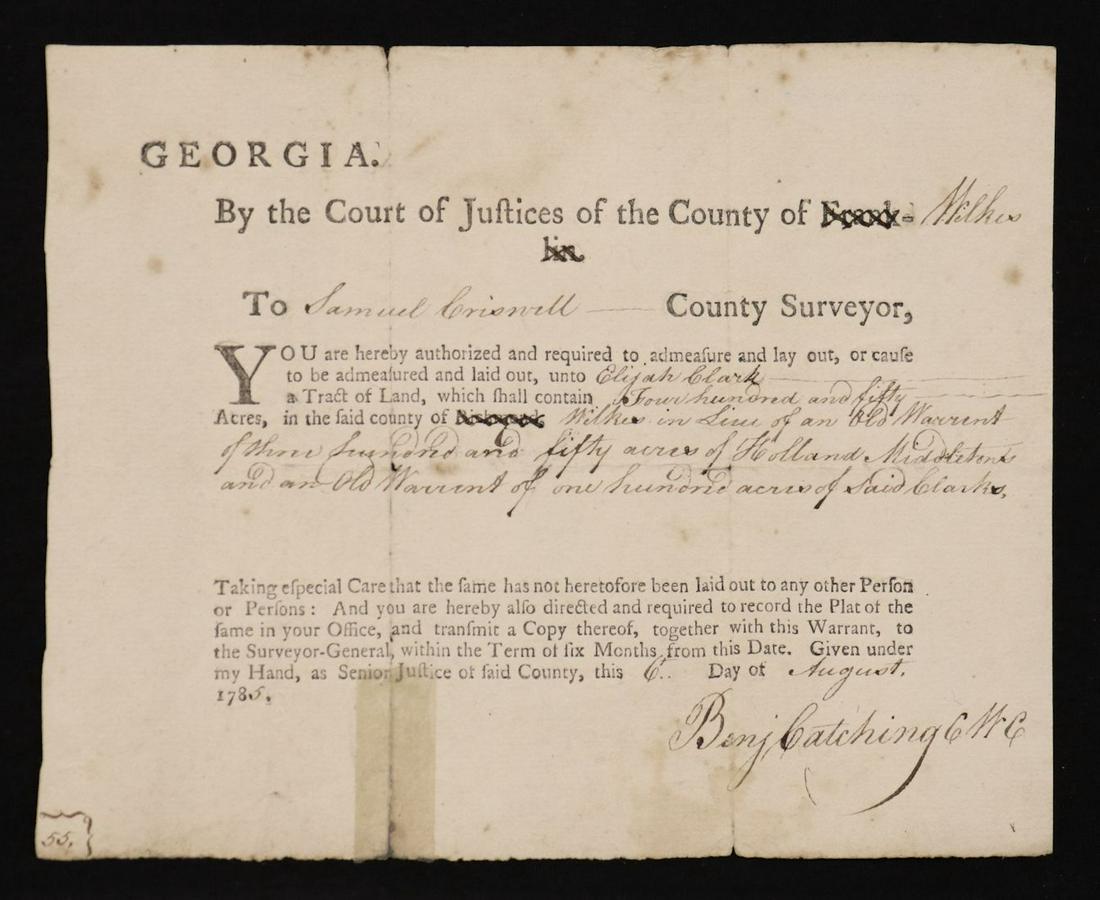 GEORGIA.
By the Court of Juſtices of the County of Frank- Wilkes
lin.
To Samuel Criswell County Surveyor,
YOU are hereby authorized and required to admeaſure and lay out, or cauſe
to be admeaſured and laid out, unto Elijah Clark
a Tract of Land, which ſhall contain Four hundred and fifty
Acres, in the ſaid county of Wilkes in Lieu of an Old Warrent
of three hundred and fifty acres of Holland Middletons
and an Old Warrent of one hundred acres of Said Clarks,
Taking eſpecial Care that the ſame has not heretofore been laid out to any other Perſon
or Perſons: And you are hereby alſo directed and required to record the Plat of the
ſame in your Office, and tranſmit a Copy thereof, together with this Warrant, to
the Surveyor-General, within the Term of ſix Months from this Date. Given under
my Hand, as Senior Juſtice of ſaid County, this 6.. Day of August.
1785.
Benj Catching C W C
55,